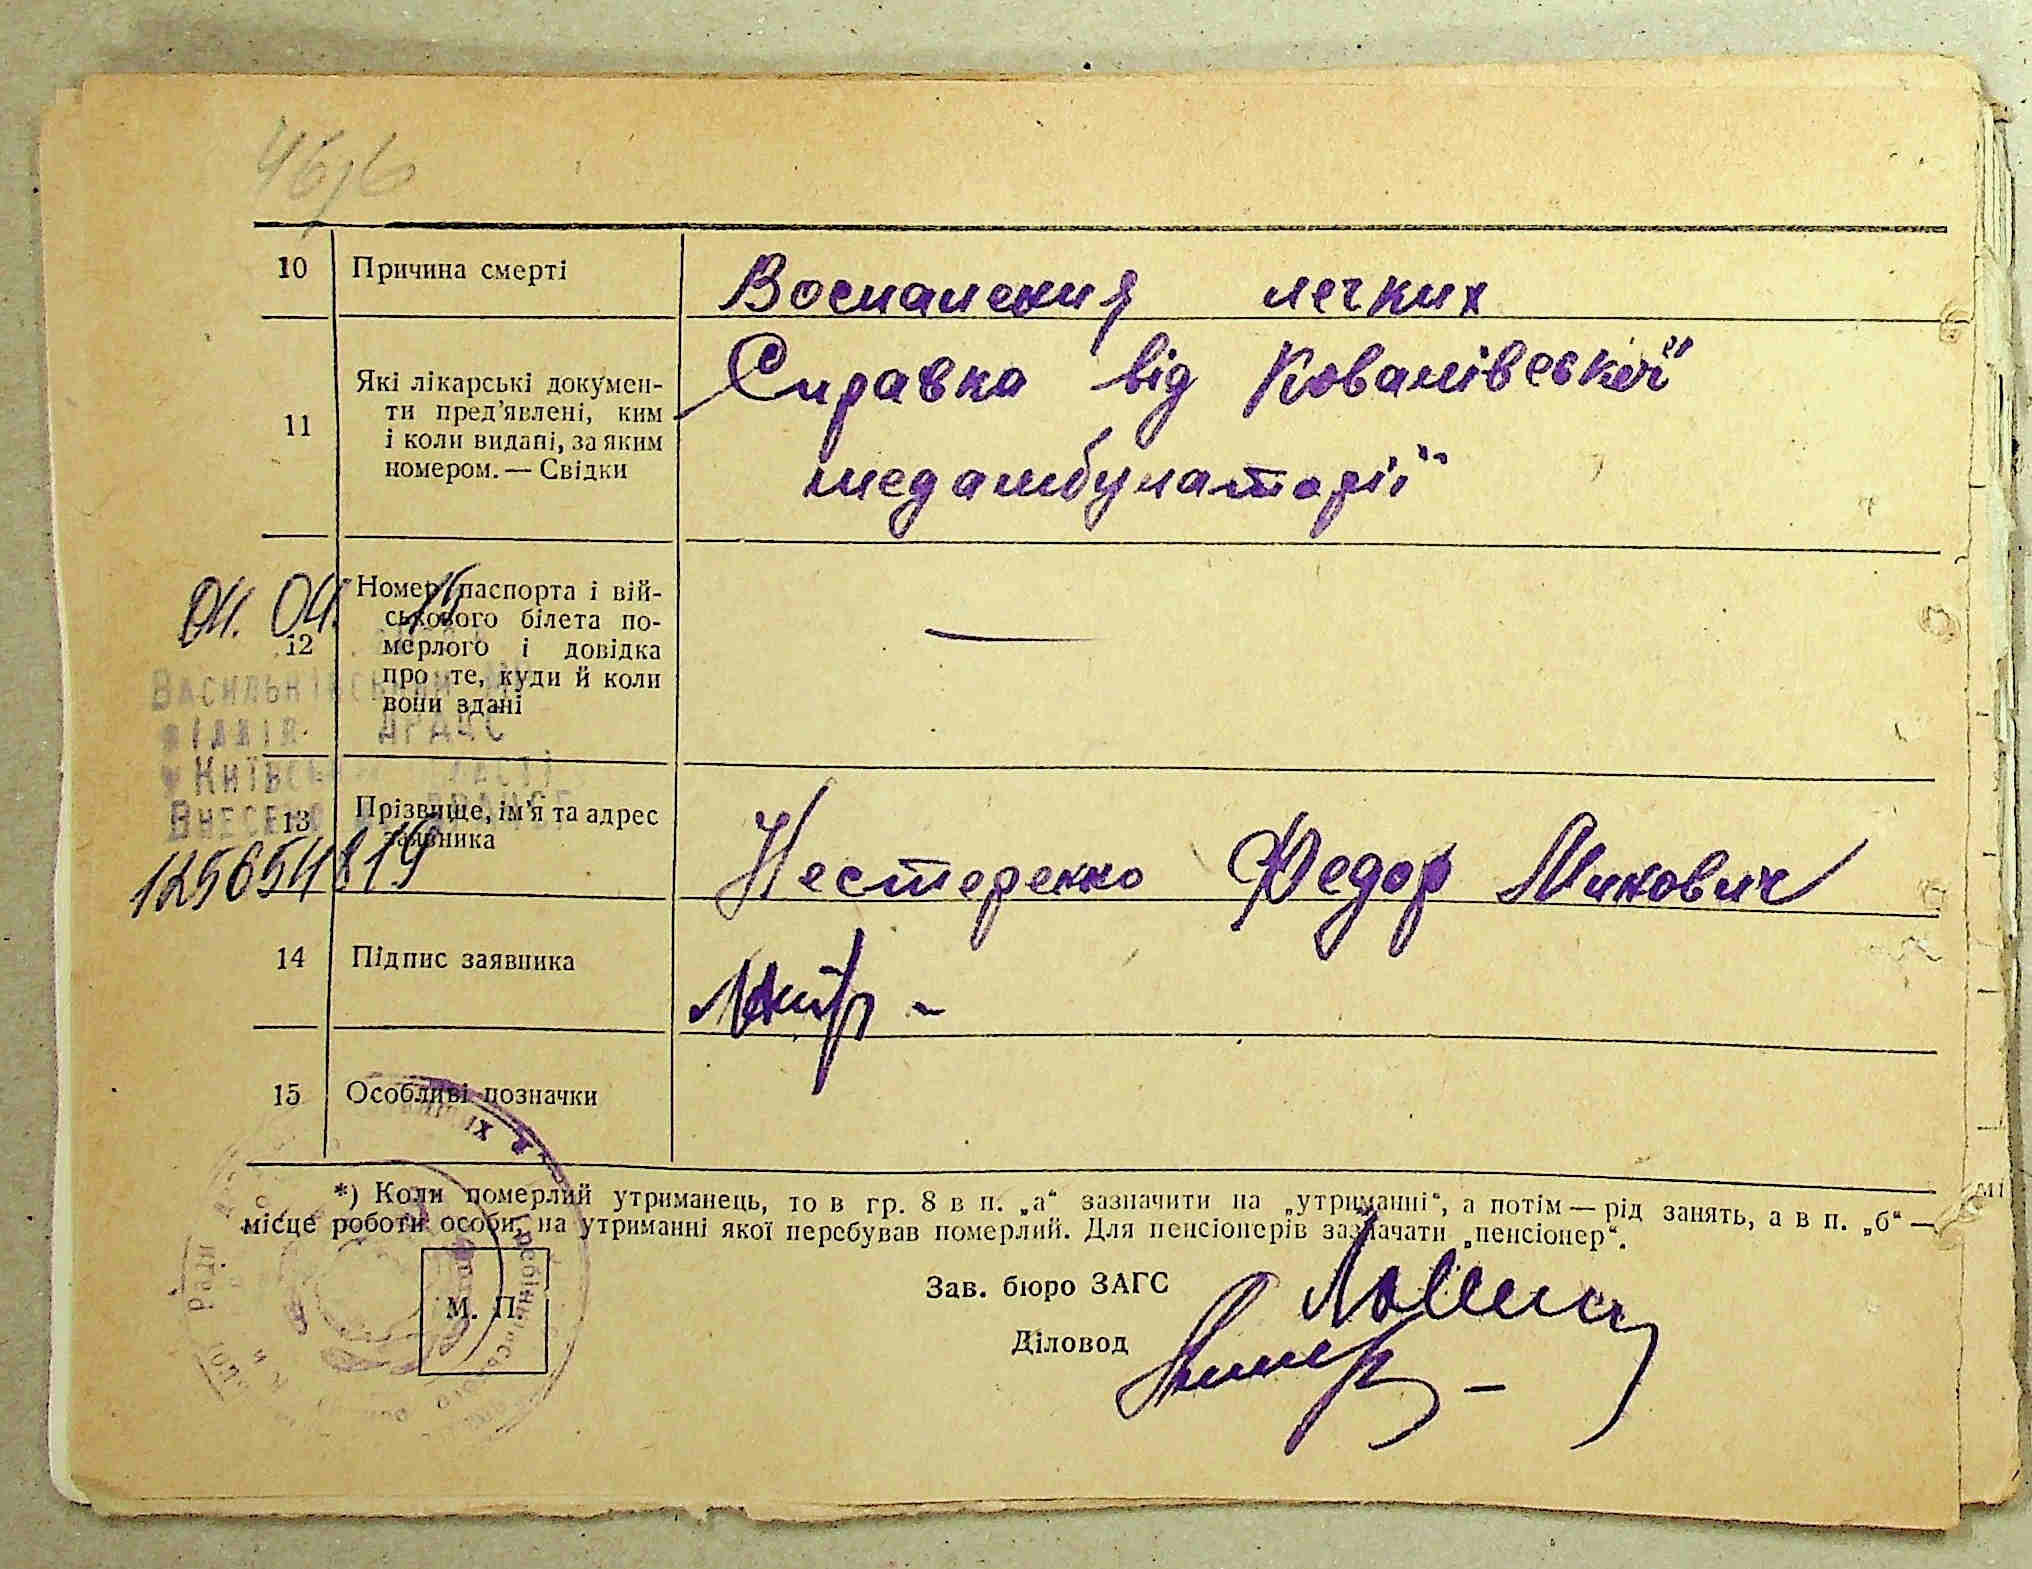 10 Причина смерті Воспаления легких
11 Які лікарські докумен-
ти пред'явлені, ким
і коли видані, за яким
номером. — Свідки
Справка від Ковалівської
медамбулаторії
01. 04. 15
12 Номер паспорта і вій-
ськового білета по-
мерлого і довідка
про те, куди й коли
вони здані
—
Васильківський
відділ ДРАЦС
Київс
Внесено
125654819
13 Прізвище, ім'я та адрес
заявника
Нестеренко Федор
14 Підпис заявника
15 Особливі позначки
*) Коли померлий утриманець, то в гр. 8 в п. „а“ зазначити на „утриманні“, а потім — рід занять, а в п. „б“ —
місце роботи особи, на утриманні якої перебував померлий. Для пенсіонерів зазначати „пенсіонер“.
М. П.
Зав. бюро ЗАГС
Діловод